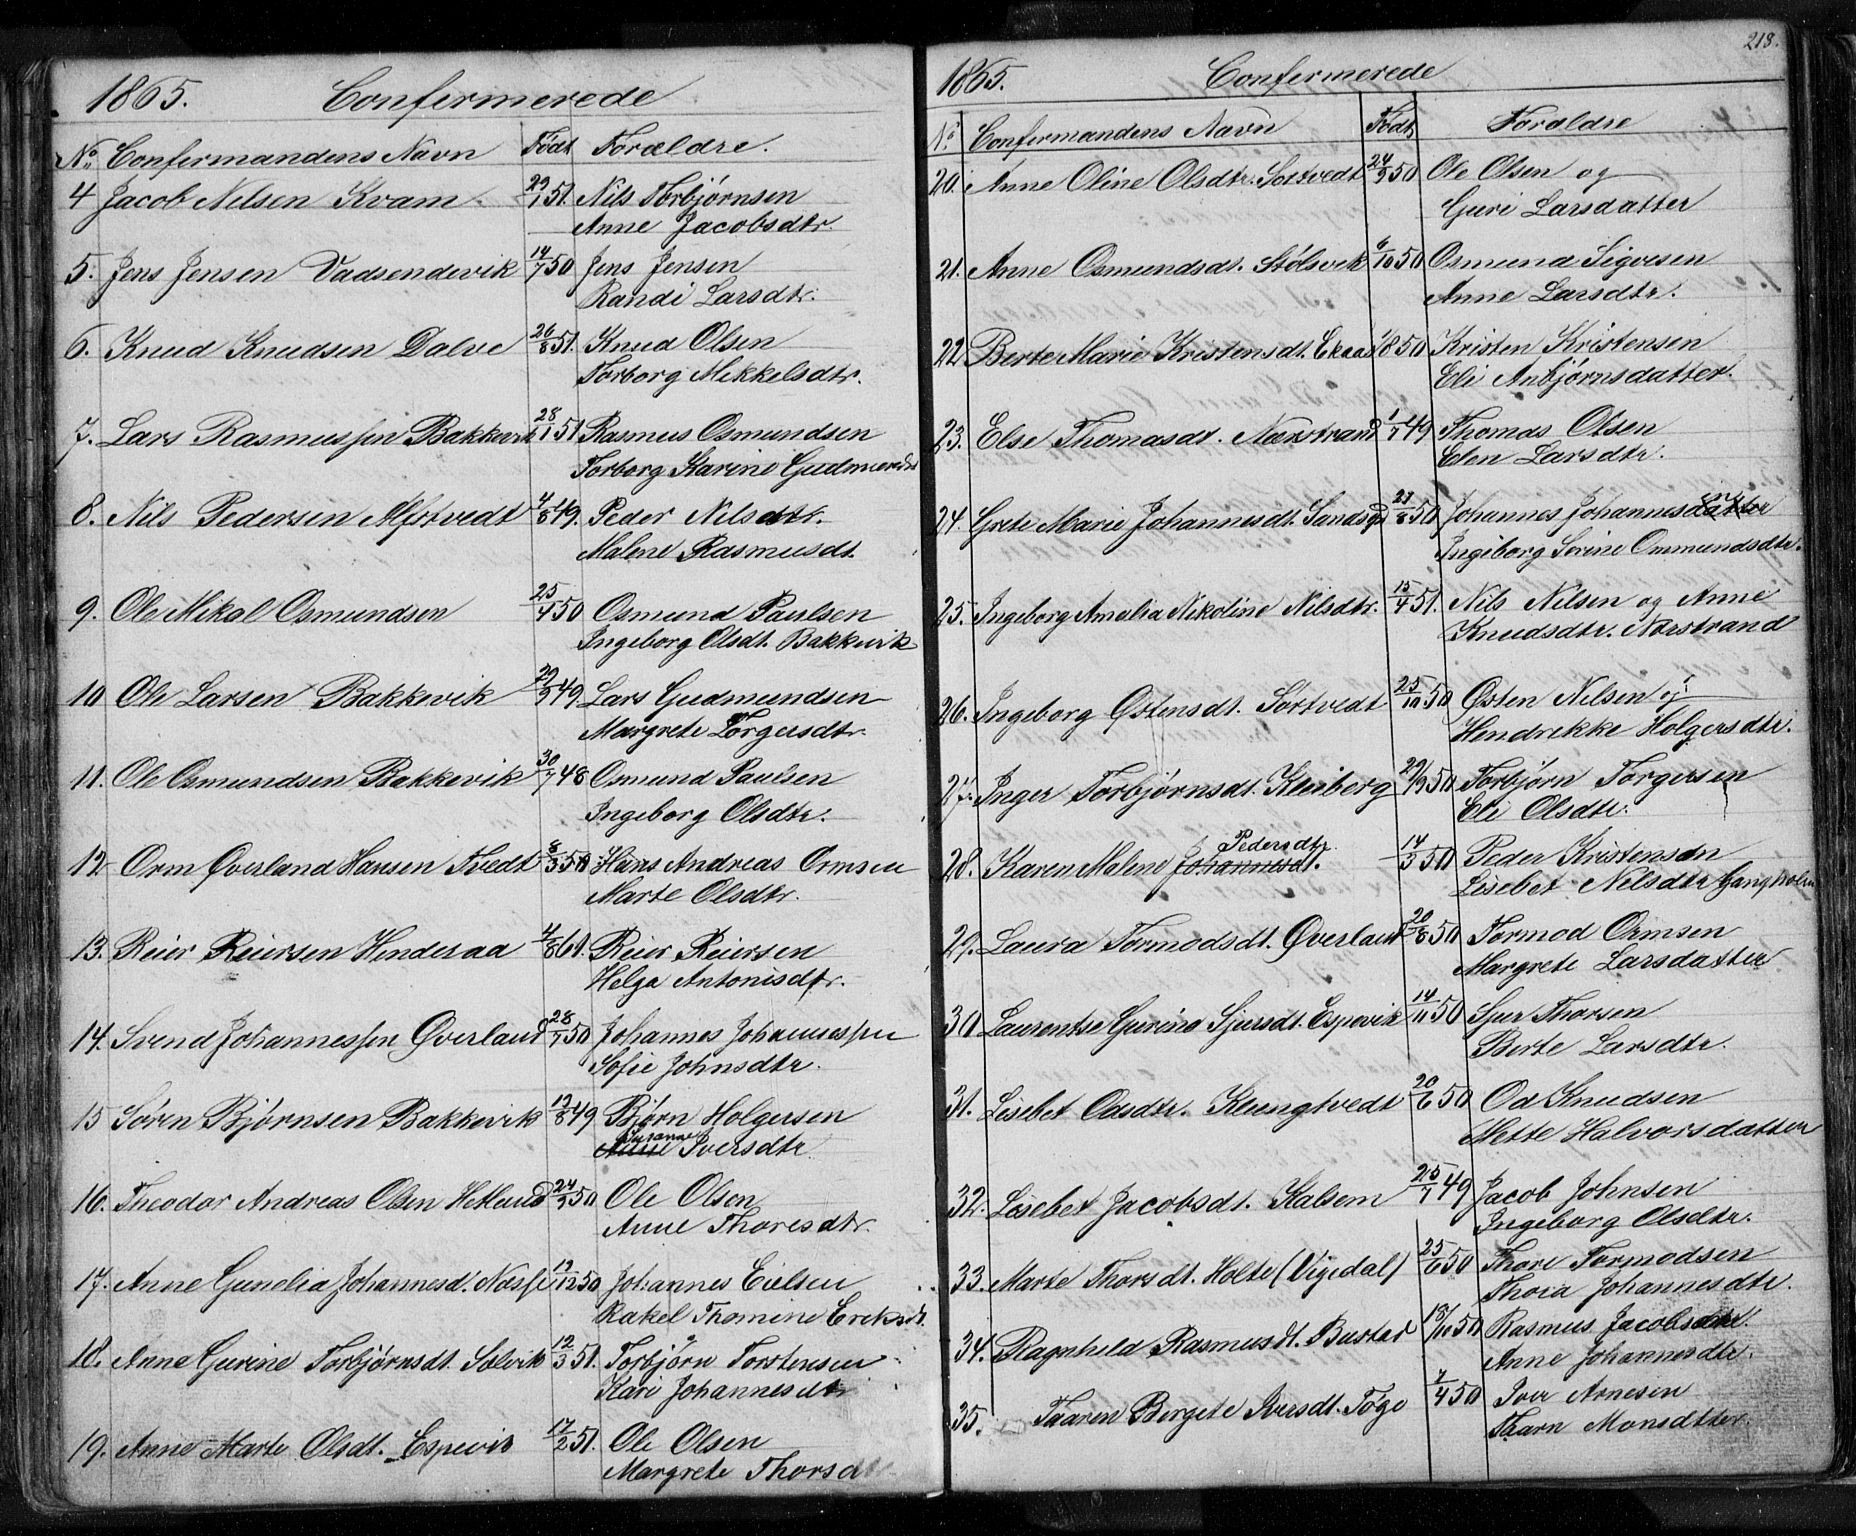 1865. Confermerede
No. Confermandens Navn Født Forældre.
4 Jacob Nilsen Kvam 29/1 51. Nils Torbjørnsen
Anne Jacobsdtr.
5. Jens Jensen Vadsendevik 14/7 50 Jens Jensen
Randi Larsdtr.
6. Knud Knudsen Dalve 26/8 51. Knud Olsen
Torborg Mikkelsdtr.
7. Lars Rasmussen Bakkevik 28/1 51 Rasmus Osmundsen
Torborg Karine Gudmundsd
8. Nils Pedersen Alfstvedt 4/8 49. Peder Nilsdtr.
Malene Rasmusdt.
9. Ole Mikal Osmundsen 25/4 50 Osmund Paulsen
Ingeborg Olsdt. Bakkevik
10 Ole Larsen Bakkevik 29/9 49 Lars Gudmundsen
Margrete Torgersdtr.
11. Ole Osmundsen Bakkevik 30/7 48 Osmund Paulsen
Ingeborg Olsdtr.
12 Orm Øverland Hansen Tvedt 8/3 50 Hans Andreas Ormsen
Marte Olsdtr.
13. Reier Reiersen Hinderaa 4/8 61. Reier Reiersen
Helga Antonisdtr.
14. Svend Johannessen Øverland 28/7 50 Johannes Johannessen
Sofie Johnsdtr.
15 Søren Bjørnsen Bakkevik 12/8 49 Bjørn Holgersen
Susanne
Anne Iversdtr.
16. Theodor Andreas Olsen Hetland 24/9 50 Ole Olsen
Anne Thoresdtr.
17. Anne Gunelia Johannesd. Næsse 19/12 50 Johannes Eielsen
Rakel Thomine Eriksdt.
18. Anne Gurine Torbjørnsdt. Solvik 12/3 51. Torbjørn Torstensen
Kari Johannesdtr
19. Anne Marte Olsdt. Espevik 17/2 51. Ole Olsen
Margrete Thorsd
218.
1865. Confermerede
No. Confermandens Navn Født Forældre
20. Anne Oline Olsdtr. Sørtvedt 24/9 50 Ole Olsen og
Guri Larsdatter
21. Anne Osmundsdt. Stølsvik 6/10 50 Osmund Sigvesen
Anne Larsdtr.
22 Berte Marie Kristensdt. Ekaas 1/8 50 Kristen Kristensen
Eli Anbjørnsdatter.
23. Else Thomasdt. Nærstrand 1/7 49 Thomas Olsen
Elen Larsdtr.
24. Grete Marie Johannesdt. Sandsgd 21/8 50 Johannes Johannesdatter
Ingiborg Serine Ommundsdtr.
25. Ingeborg Amalia Nikoline Nilsdtr. 15/4 51. Nils Nilsen og Anne
Knudsdtr. Nærstrand
26. Ingeborg Østensdt. Sørtvedt 25/10 50 Østen Nilsen og
Hendrikke Holgersdtr.
27. Inger Torbjørnsdt. Kleiberg 29/9 50 Torbjørn Torgersen
Eli Olsdtr.
Pedersdtr
28. Karen Malene Johannesdt. 14/3 50 Peder Kristensen
Lisebet Nilsdtr Gangholm
29. Laura Tormodsdt. Øverland 20/8 50 Tormod Ormsen
Margrete Larsdatter
30. Laurentse Gurine Sjursdt. Espevik 14/11 50 Sjur Thorsen
Berte Larsdtr.
31. Lisebet Odsdtr. Klungtvedt 20/6 50 Od Knudsen
Mette Halvorsdatter
32. Lisebet Jacobsdt. Kalsem 25/7 49 Jacob Johnsen
Ingeborg Olsdtr.
33. Marte Thorsdt. Holte (Vigedal) 25/6 50 Thore Tormodsen
Thoia Johannesdtr.
34. Ragnhild Rasmusdt. Bustad 18/10 50 Rasmus Jacobsdtr
Anne Johannesdtr.
35. Taaren Bergete Iversdt. Føgo 7/4 50 Iver Arnesen
Thorn Monsdtter